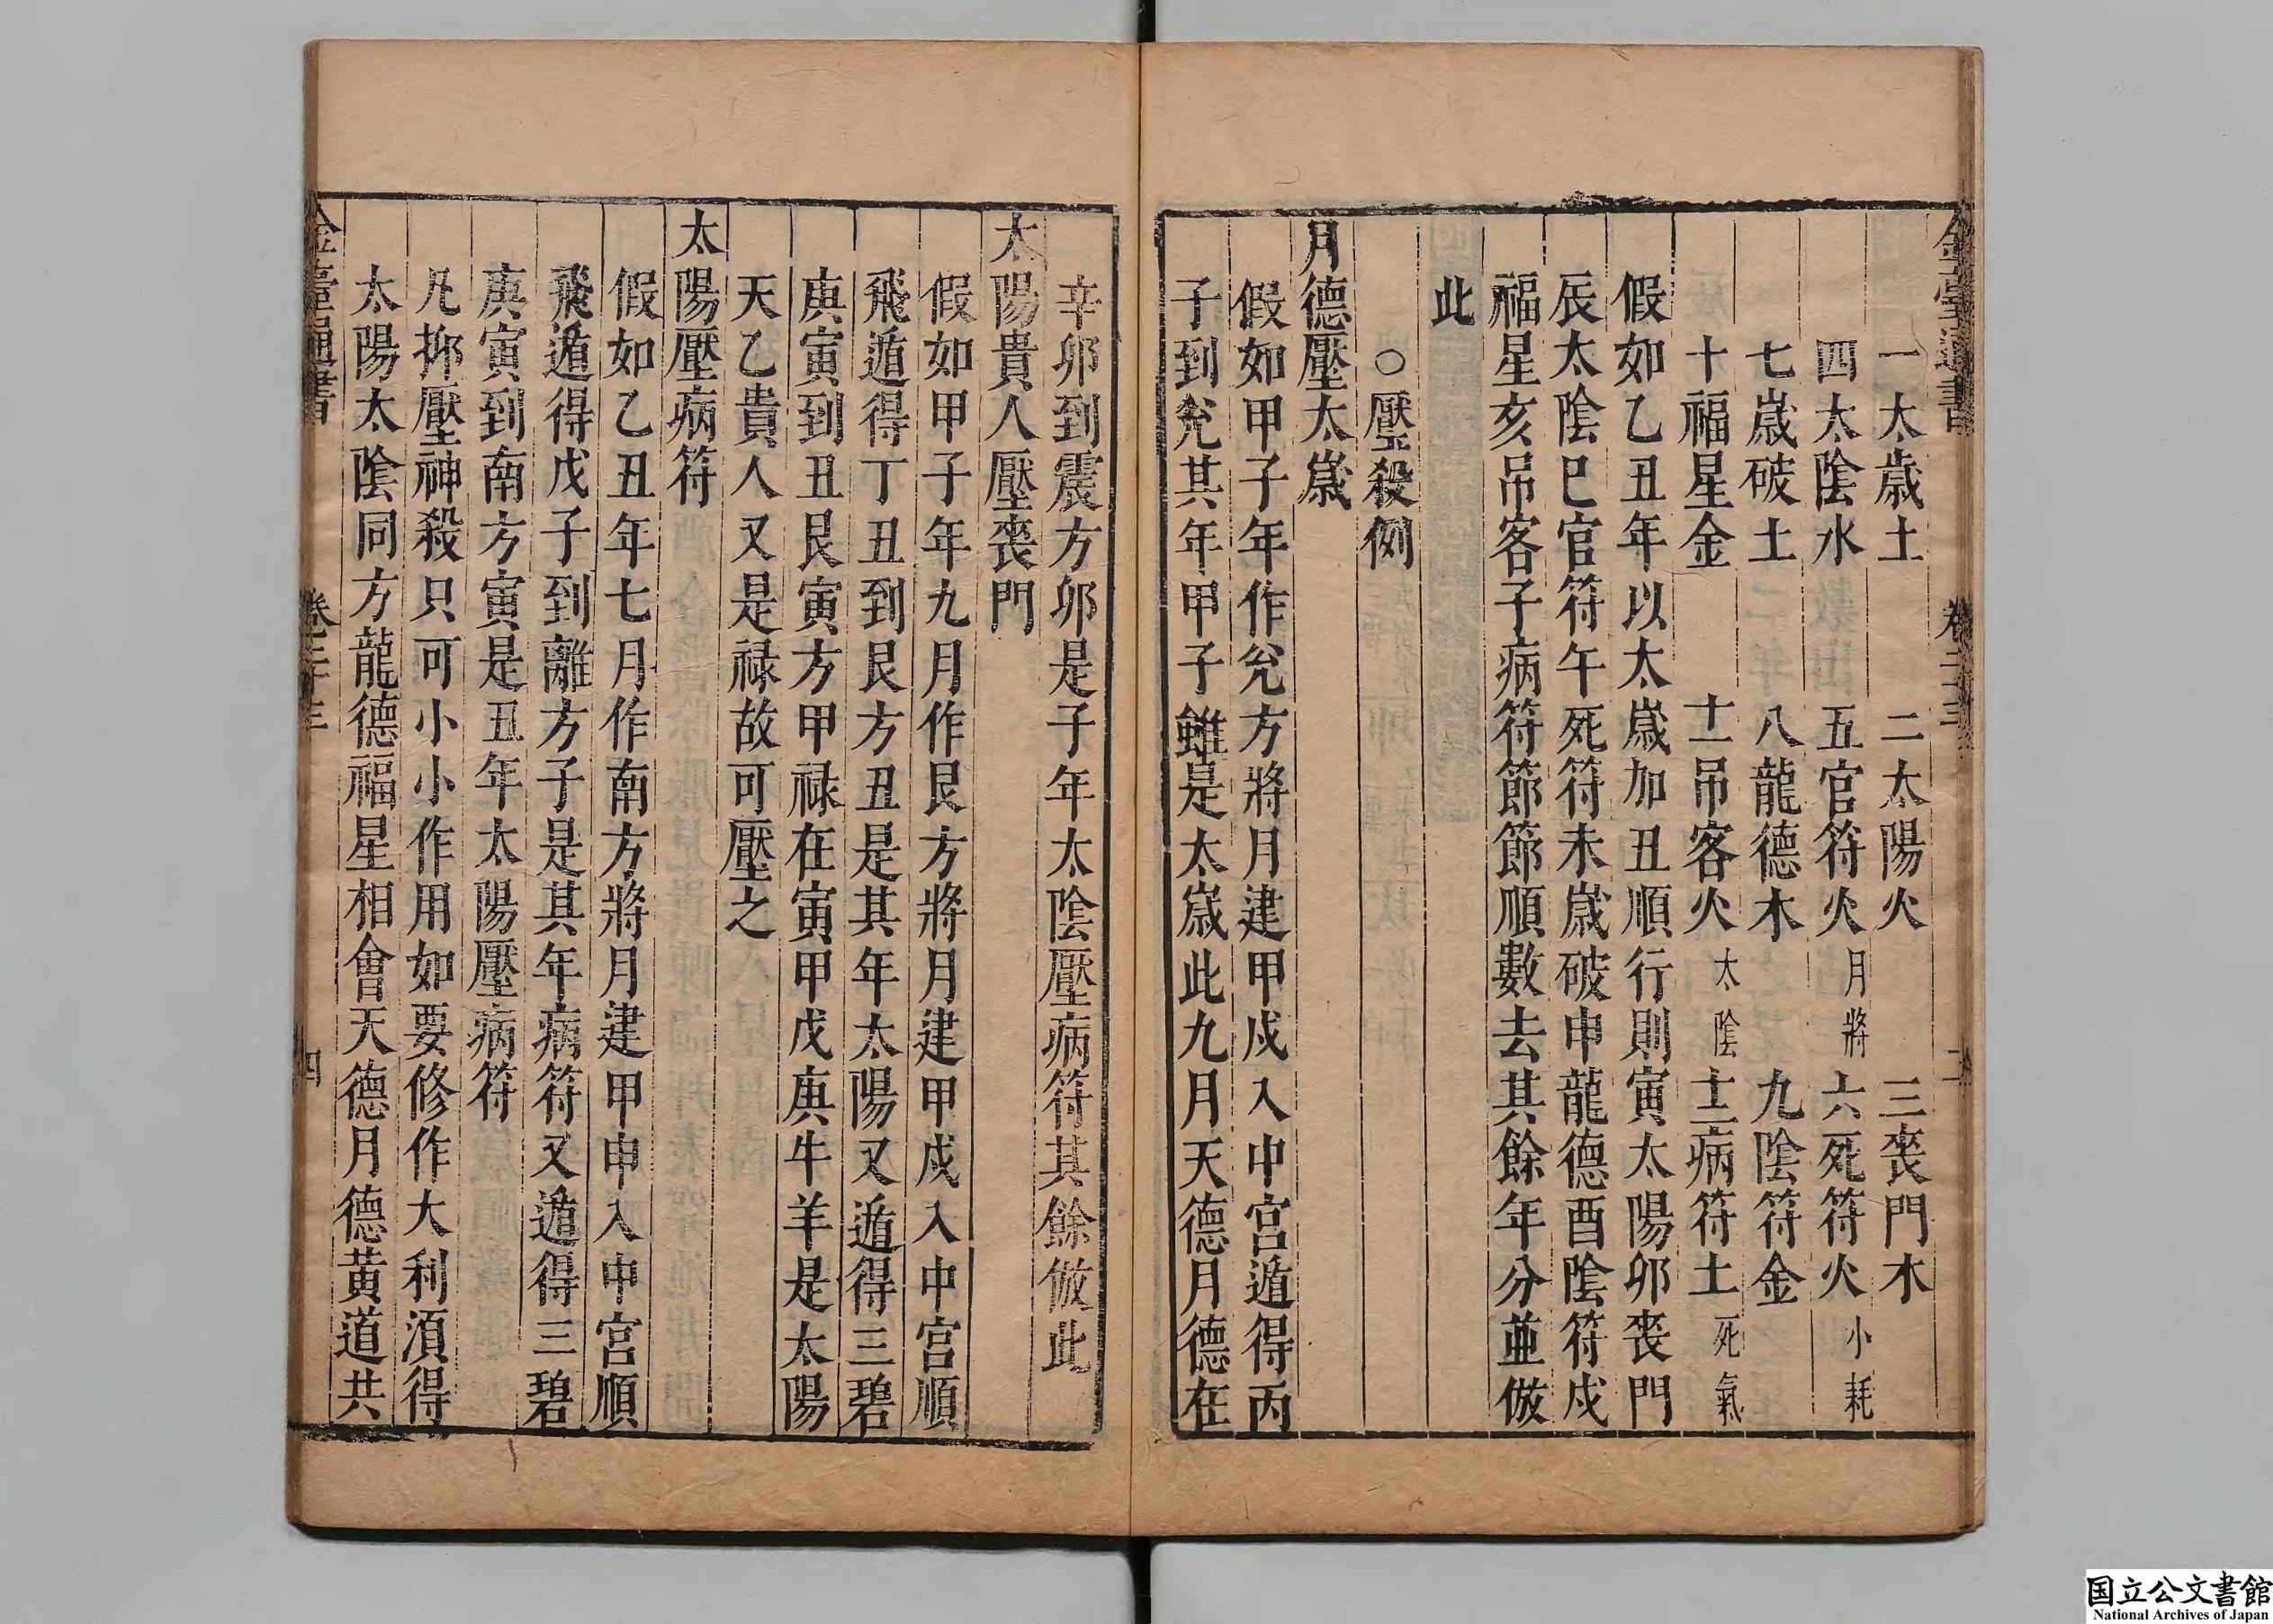 金臺通書　卷二十三
一太歲土　二太陽火　三喪門木
四太陰水　五官符火　月將　六死符火　小耗
七歲破土　八龍德木　九陰符金
十福星金　十一吊客火　太陰　十二病符土　死氣
假如乙丑年以太歲加丑順行則寅太陽卯喪門
辰太陰巳官符午死符未歲破申龍德酉陰符戌
福星亥吊客子病符節節順數去其餘年分並倣
此
○壓殺例
月德壓太歲
假如甲子年作兊方將月建甲戌入中宮遁得丙
子到兊其年甲子雖是太歲此九月天德月德在
辛卯到震方卯是子年太陰壓病符其餘倣此
太陽貴人壓喪門
假如甲子年九月作艮方將月建甲戌入中宮順
飛遁得丁丑到艮方丑是其年太陽又遁得三碧
庚寅到丑艮寅方甲祿在寅甲戊庚牛羊是太陽
天乙貴人又是祿故可壓之
太陽壓病符
假如乙丑年七月作南方將月建甲申入中宮順
飛遁得戊子到離方子是其年病符又遁得三碧
庚寅到南方寅是丑年太陽壓病符
凡抑壓神殺只可小小作用如要修作大利湏得
太陽太陰同方龍德福星相會天德月德黃道共
金臺通書　卷二十三　四
国立公文書館
National Archives of Japan